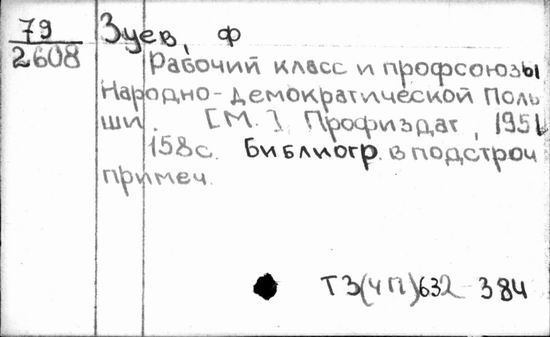 79
2608
Зуев, Ф
Рабочий класс и профсоюзы
Народно-демократической Поль
ши. [М.] Профиздат, 1951
158с. Библиогр. в подстроч
примеч.
Т3(4П)632 384